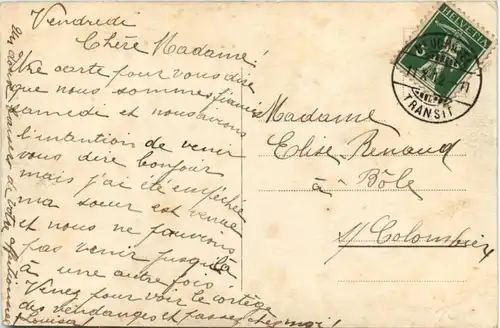 Vendredi
Chère Madame!
Une carte pour vous dire
que nous sommes fiancés
samedi et nous avons
l'intention de venir
vous dire bonjour
mais j'ai été empêchée
ma soeur est venue
et nous ne pouvions
pas venir jusqu'à
à une autre fois!
Venez pour voir le cortège
des vendanges et passez chez moi!
Louisa
de votre affectionnée
HELVETIA
TRANSIT
Madame
Elise Renaud
à Bôle
s/ Colombier